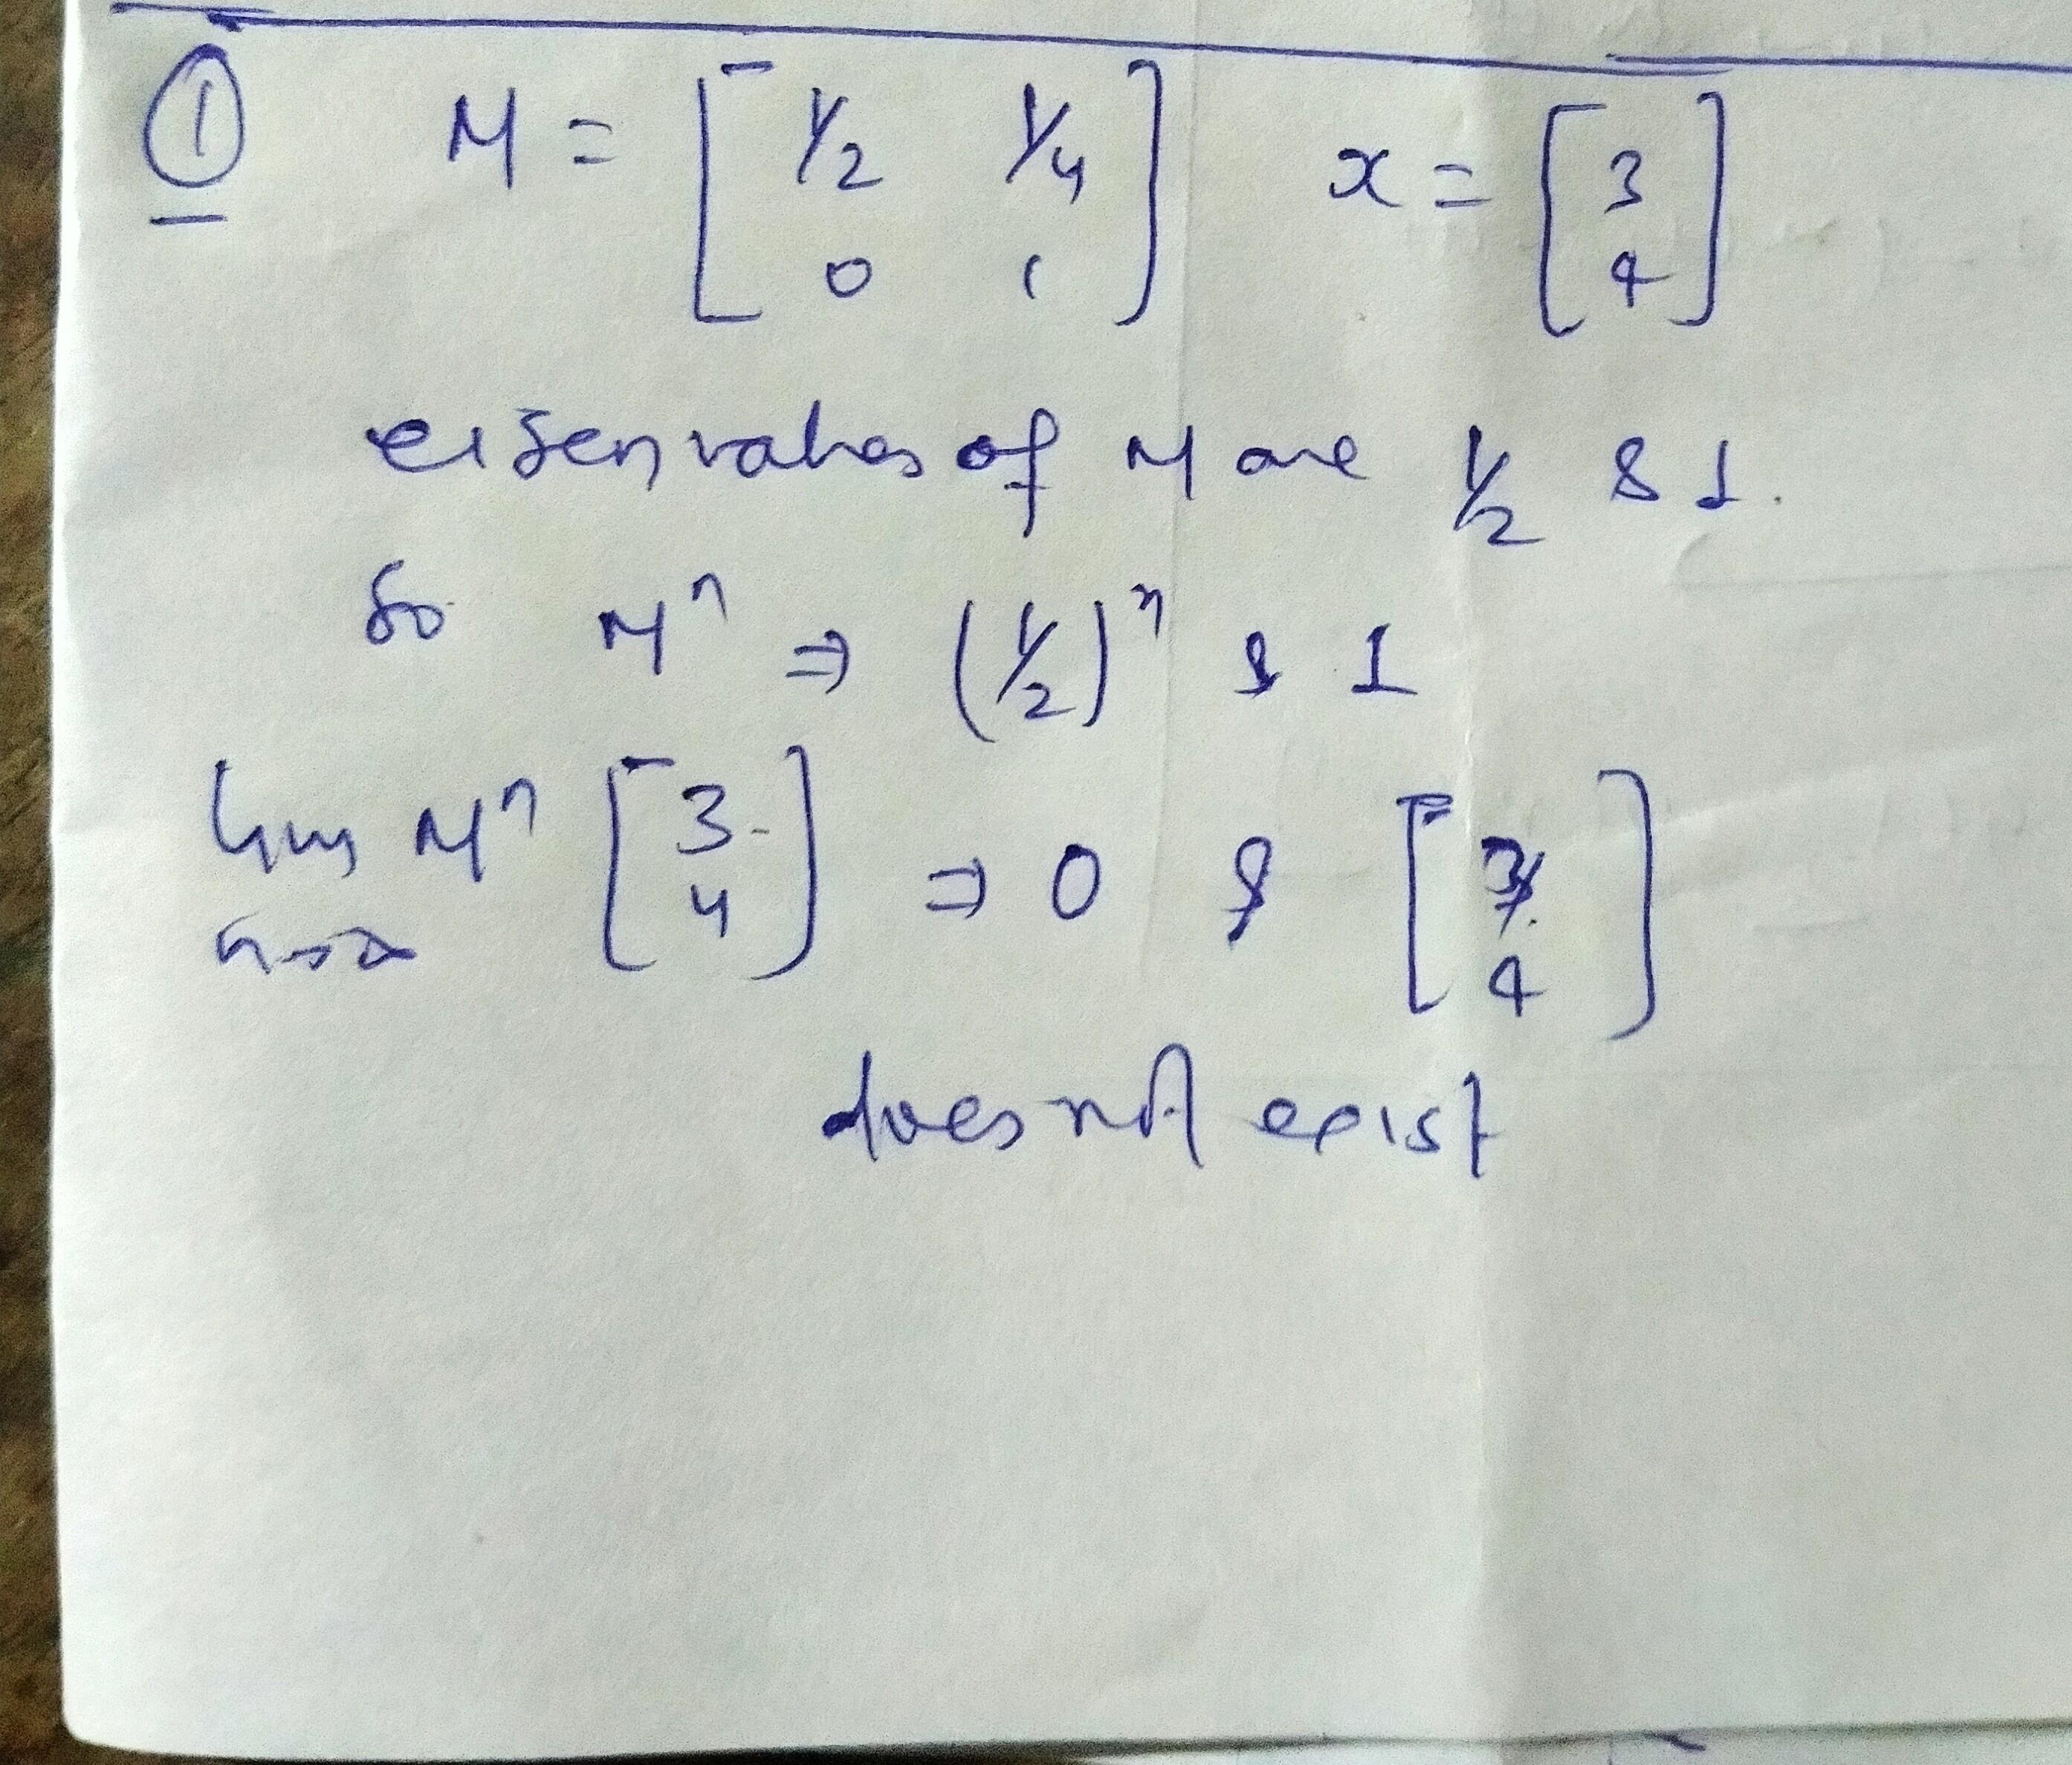 ① M = [ 1/2 1/4 0 1 ] x = [ 3 4 ]
eigenvalues of M are 1/2 & 1.
So M^n ⇒ (1/2)^n & 1
lim n→∞ M^n [ 3 4 ] ⇒ 0 & [ 3 4 ]
does not exist